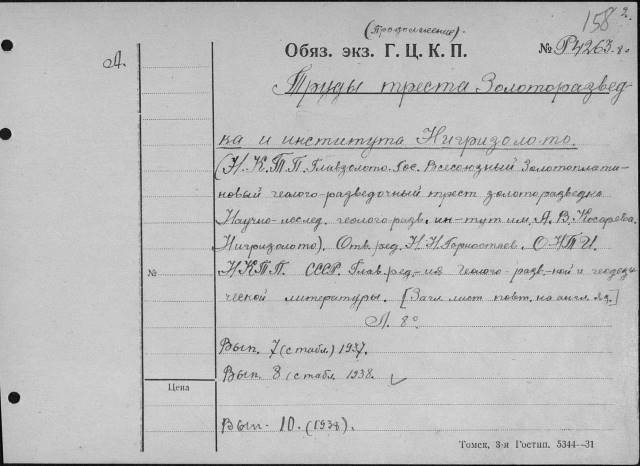 158 2.
(Продолжение).
Л. Обяз. экз. Г. Ц. К. П. № Р4263-8о
Труды треста Золоторазвед-
ка и института Нигризолото.
(Н. К. Т. П. Главзолото. Гос. Всесоюзный Золотоплати-
новый геолого-разведочный трест золоторазведка
Научно-исслед. геолого-разв. ин-тут им. А. В. Косарева
Нигризолото). Отв. ред. Н. Н. Горностаев. О.Н.Т.И.
№ Н.К.Т.П. СССР. Глав. ред-ия геолого-разв-ной и геодези-
ческой литературы. [Загл. лист повт. на англ. яз.]
Л. 8о
Вып. 7 (с табл.) 1937.
Вып. 8 (с табл. 1938.
Цена
Вып. 10. (1938).
Томск, 3-я Гостип. 5344—31